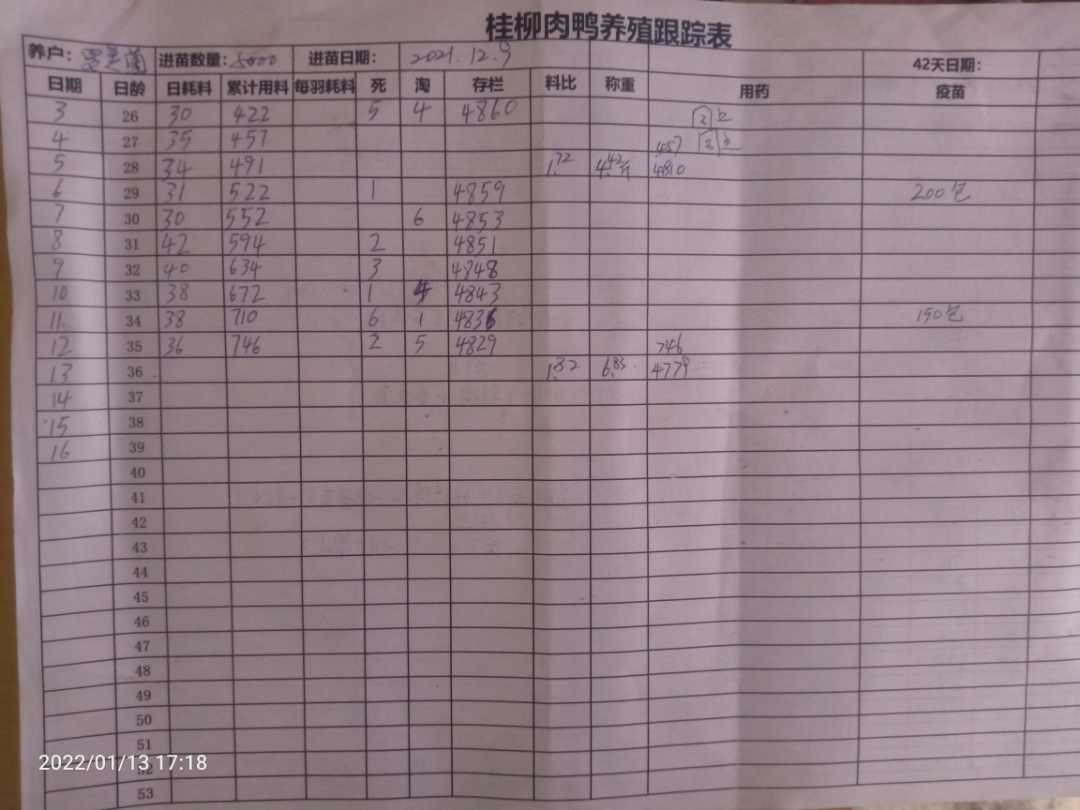 桂柳肉鸭养殖跟踪表
养户： 进苗数量：5000 进苗日期： 2021.12.9 42天日期：
日期 日龄 日耗料 累计用料 每羽耗料 死 淘 存栏 料比 称重 用药 疫苗
3 26 30 422 5 4 4860
4 27 35 457 457
5 28 34 491 1.72 4.42斤 4810
6 29 31 522 1 4859 200包
7 30 30 552 6 4853
8 31 42 594 2 4851
9 32 40 634 3 4848
10 33 38 672 1 4 4843
11 34 38 710 6 1 4836 150包
12 35 36 746 2 5 4829 746
13 36 1.82 6.83 4779
14 37
15 38
16 39
40
41
42
43
44
45
46
47
48
49
50
51
52
53
2022/01/13 17:18